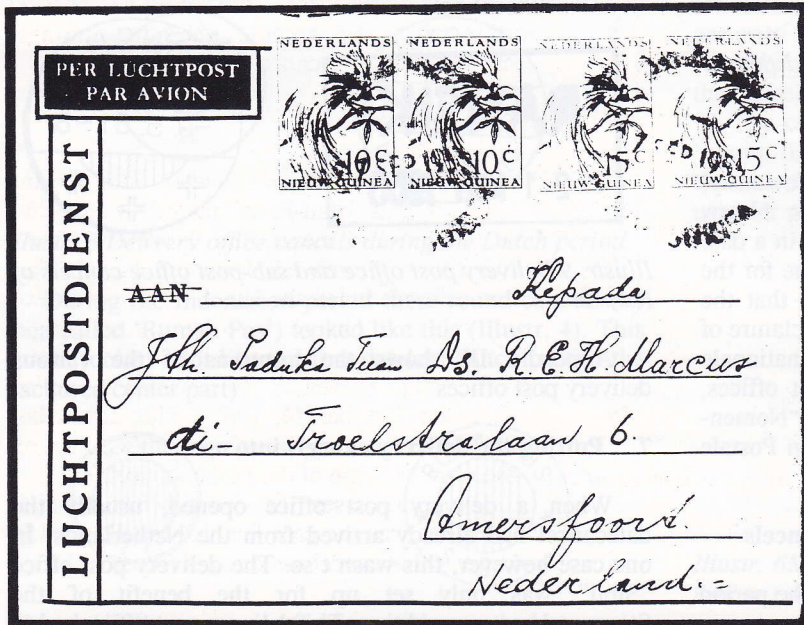 PER LUCHTPOST
PAR AVION
LUCHTPOSTDIENST
NEDERLANDS
10c
NIEUW-GUINEA
NEDERLANDS
10c
NIEUW-GUINEA
NEDERLANDS
15c
NIEUW-GUINEA
NEDERLANDS
15c
NIEUW-GUINEA
AAN
Kepada
Jth. Paduka Tuan Ds. R. E. H. Marcus
di Troelstralaan 6.
Amersfoort.
Nederland.=